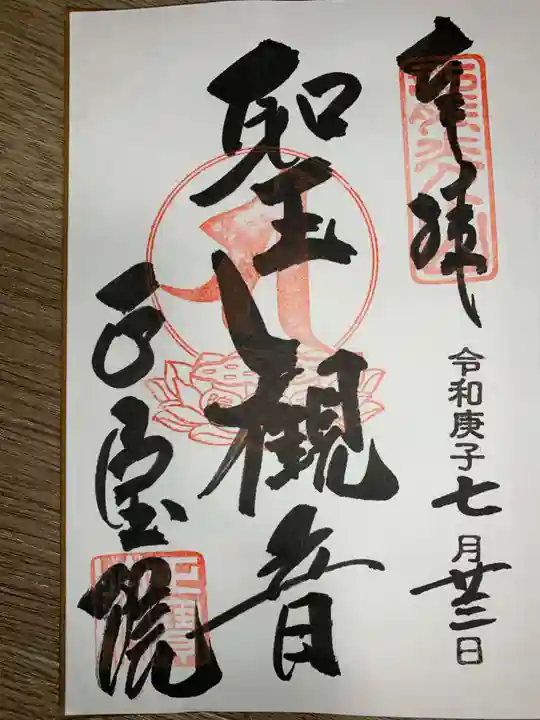 奉拝
令和庚子七月廿三日
聖観音
正宝院